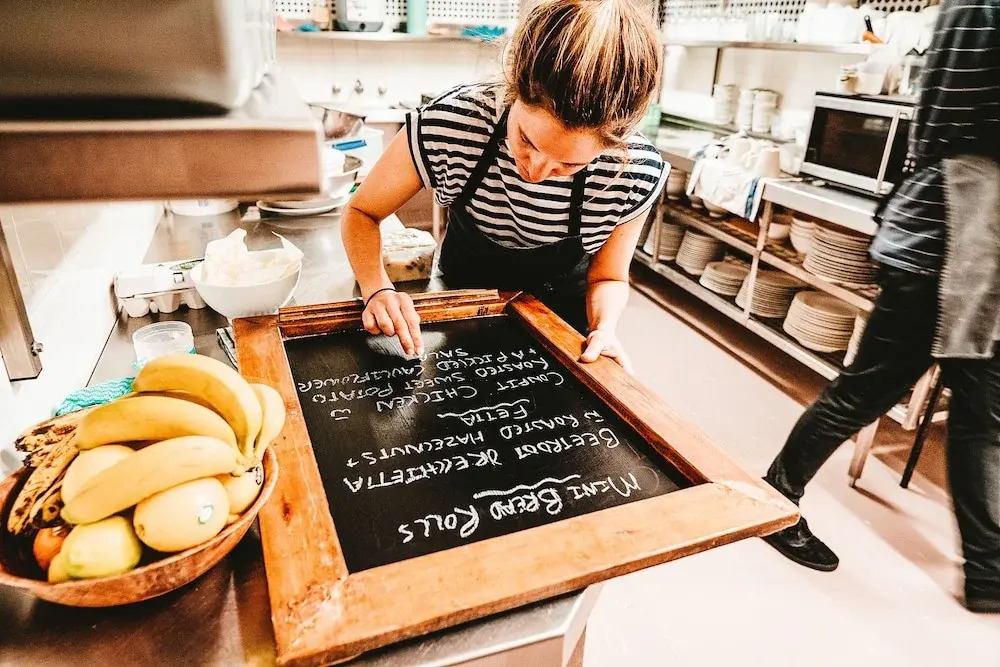 MINI BREAD ROLLS
BEETROOT ORECHIETTA
ROASTED HAZELNUTS +
FETTA
CONFIT CHICKEN
ROASTED SWEET POTATO
+ A PICKLED CAULIFLOWER
SALA